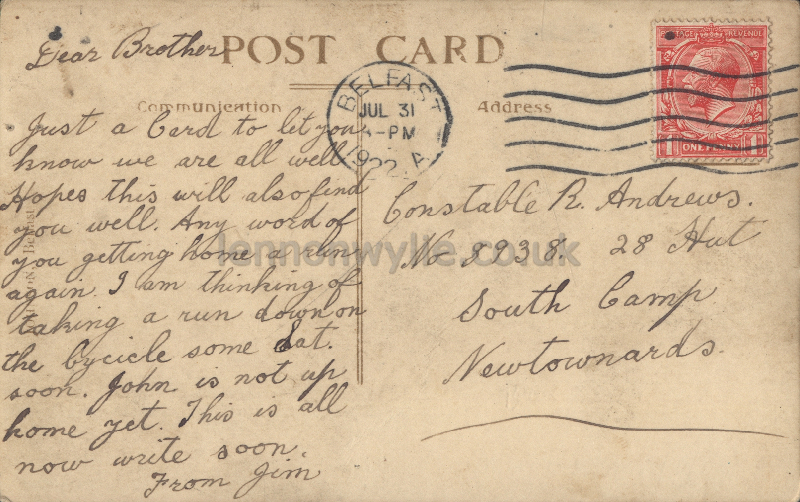 Dear Brother
POST CARD
Communication
Address
BELFAST
JUL 31
4-PM
1922 A
POSTAGE REVENUE
1 ONE PENNY 1
Just a Card to let you
know we are all well
Hopes this will also find
you well. Any word of
you getting home a run
again. I am thinking of
taking a run down on
the bycicle some Sat.
soon. John is not up
home yet. This is all
now write soon.
From Jim
Constable R. Andrews.
No 3938. 28 Hut
South Camp
Newtownards.
lennonwylie.co.uk
Belfast